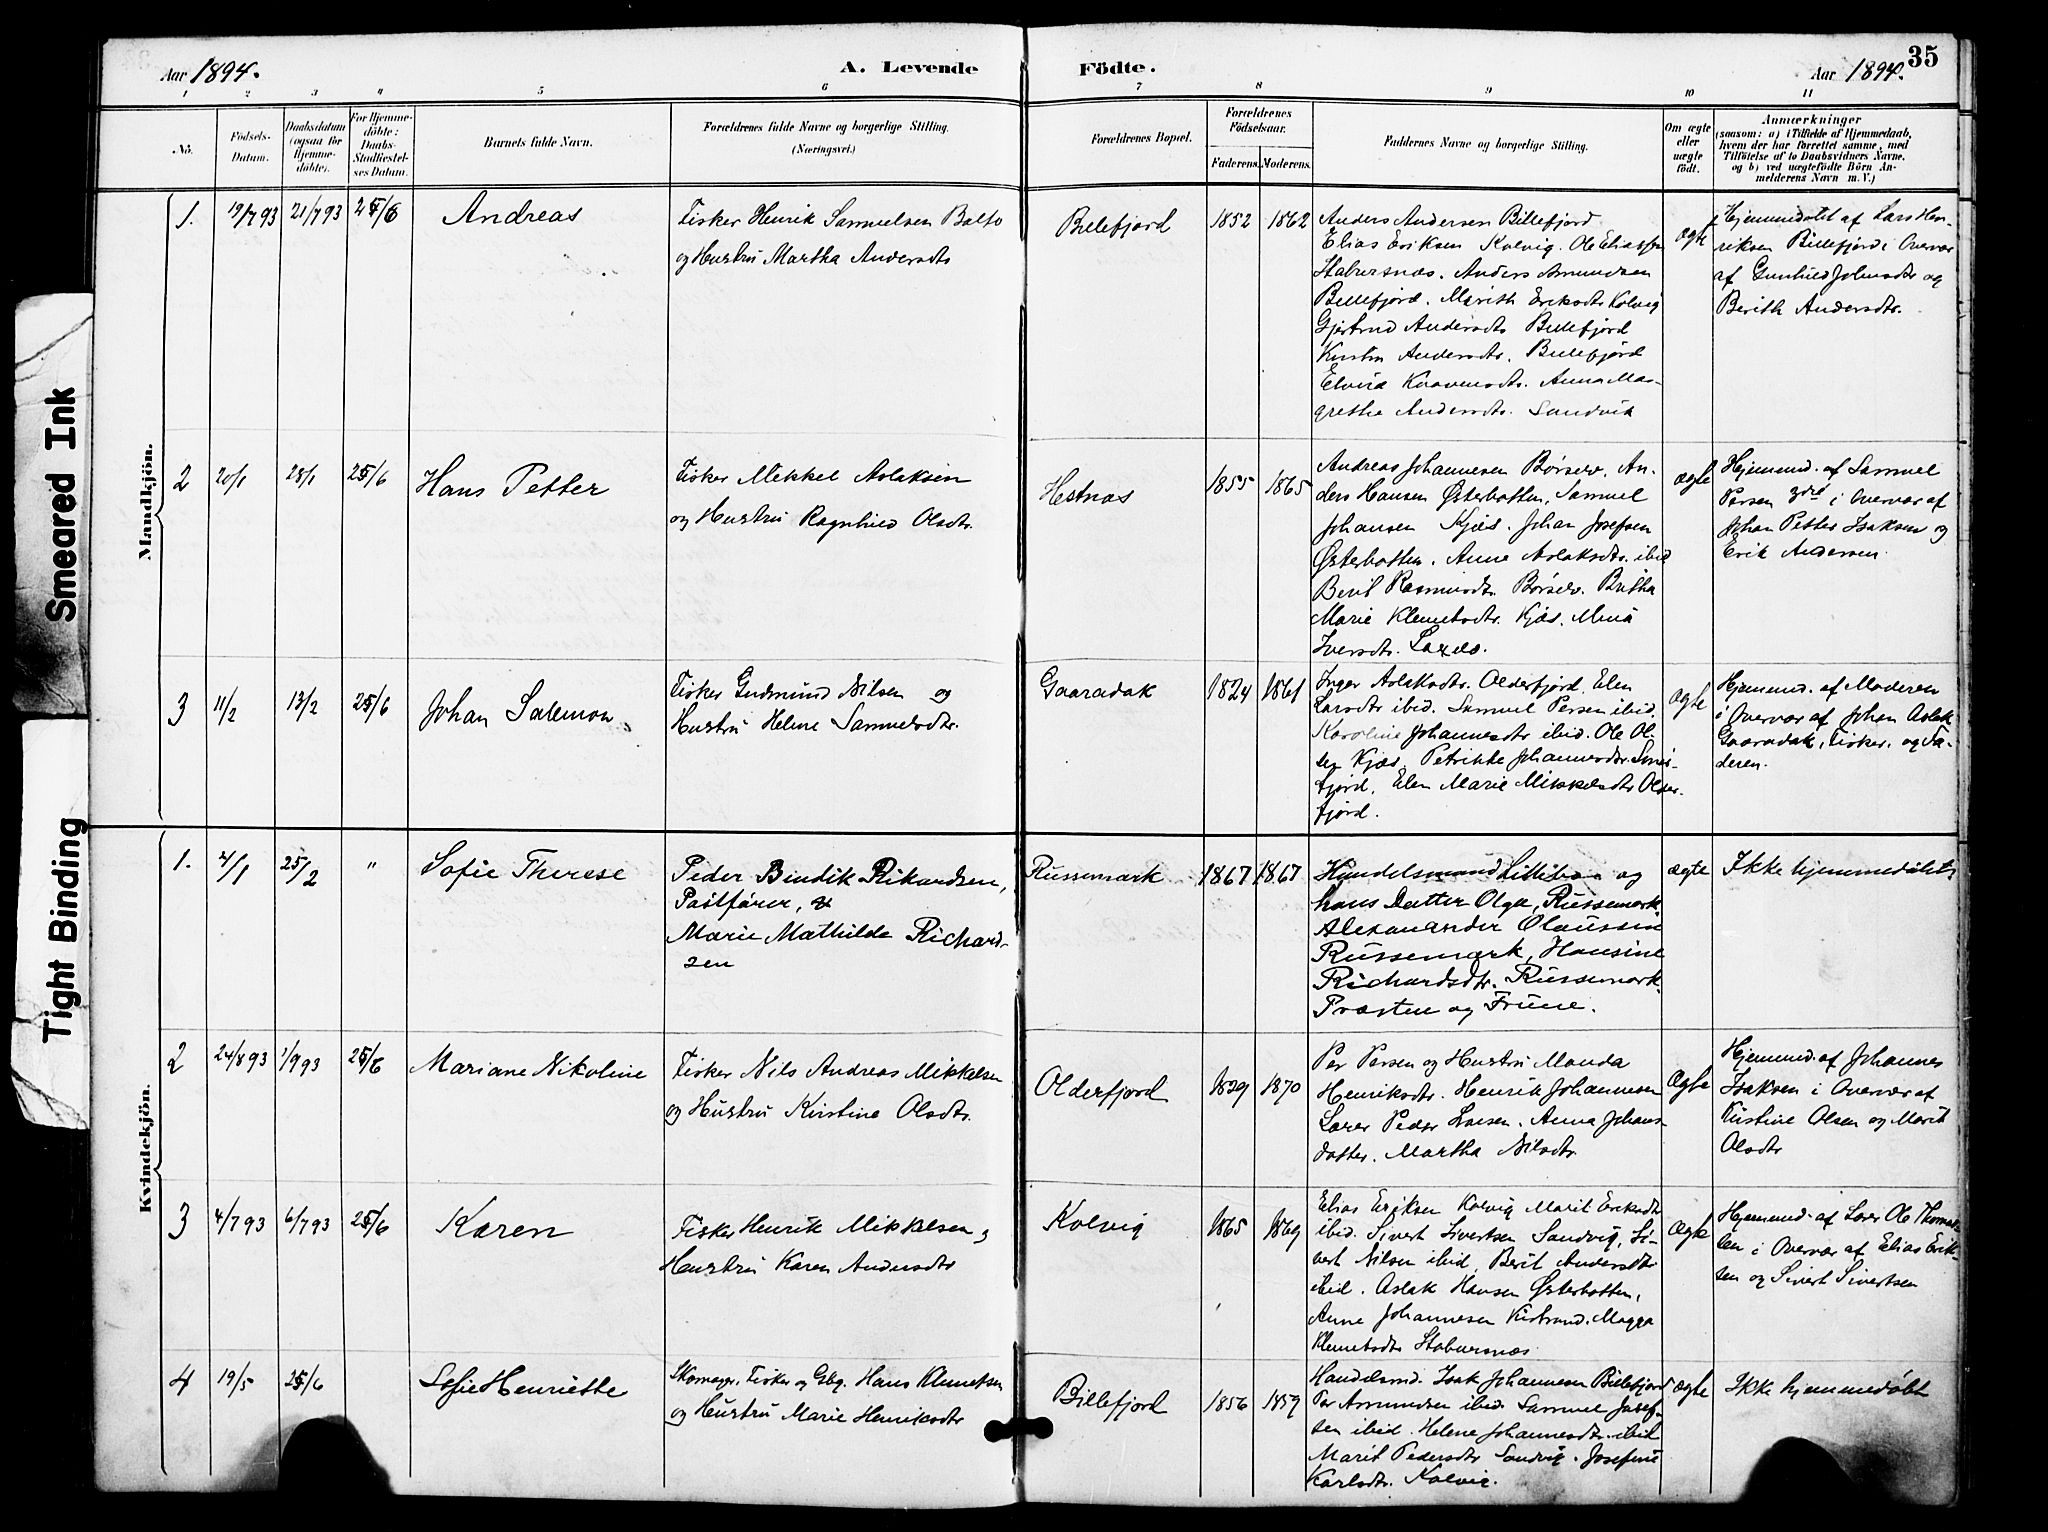 35
Aar 1894. A. Levende Födte. Aar 1894.
1 2 3 4 5 6 7 8 9 10 11
No.
Födsels-
Datum.
Daabsdatum
(ogsaa for
Hjemme-
döbte).
For Hjemme-
döbte:
Daabs-
Stadfæstel-
ses Datum.
Barnets fulde Navn.
Forældrenes fulde Navne og borgerlige Stilling.
(Næringsvei.)
Forældrenes Bopæl.
Forældrenes
Födselsaar.
Faderens. Moderens.
Faddernes Navne og borgerlige Stilling.
Om ægte
eller
uægte
födt.
Anmærkninger
(saasom: a) i Tilfælde af Hjemmedaab,
hvem der har forrettet samme, med
Tilföielse af to Daabsvidners Navne.
og b) ved uægtefödte Börn An-
melderens Navn m. V.)
Smeared Ink
Tight Binding
Mandkjön.
1. 19/7 93 21/7 93 25/6 Andreas
Fisker Henrik Samuelsen Balto
og Hustru Martha Andersdtr
Billefjord 1852 1862
Anders Andersen Billefjord
Elias Eriksen Kolvig. Ole Eliassen
Stabersnæs. Anders Amundsen
Billefjord. Marith Eriksdtr Kolvig
Gjertrud Andersdtr Billefjord
Kirsten Andersdtr. Billefjord
Elvira Andersdtr. Anna Mar-
grethe Andersdtr. Sandvik
ægte
Hjemmedøbt af Lars Hen-
riksen Billefjord i Overvær
af Gunhild Johnsdtr og
Berith Andersdtr.
2 20/1 28/1 25/6 Hans Petter
Fisker Mikkel Aslaksen
og Hustru Ragnhild Olsdtr.
Hestnæs 1855 1865
Andreas Johannesen Børselv. An-
ders Hansen Østerbotten, Samuel
Johansen Kjæs. Johan Josefsen
Østerbotten. Anne Aslaksdtr. ibid
Berit Rasmusdtr. Børselv. Britha
Marie Klemetsdtr. Kjæs.
Iversdtr.
ægte
Hjemmed. af Samuel
Persen i Overvær af
Johan Petter Isaksen og
Erik Andersen.
3 11/2 13/2 25/6 Johan Salemon
Fisker Gudmund Nilsen og
Hustru Helene Samuelsdtr.
Gaaradak 1824 1861
Inger Aslaksdtr. Olderfjord. Elen
Larsdtr ibid. Samuel Persen ibid.
Karoline Johannesdtr ibid. Ole Ol-
sen Kjæs. Petrikke Johannesdtr. Smør-
fjord. Elen Marie Mikkelsdtr Older-
fjord.
ægte
Hjemmed. af Moderen
i Overvær af Johan Aslak
Gaaradak, Fisker. og Fa-
deren.
Kvindekjön.
1. 4/1 25/2 " Sofie Therese
Peder Bendik Rikardsen,
Postfører, &
Marie Mathilde Richard-
sen
Russemark 1867 1867
Handelsmand og
hans Datter Olga, Russemark.
Alexander Olaussen
Russemark, Hansine
Richardsdtr. Russemark.
Præsten og Frue.
ægte
Ikke hjemmedøbt
2 24/8 93 1/9 93 25/6 Mariane Nikoline
Fisker Nils Andreas Mikkelsen
og Hustru Kirstine Olsdtr.
Olderfjord 1829 1870
Per Persen og Hustru Manda
Henriksdtr. Henrik Johannesen
Lærer Peder Anna Johans-
datter. Martha Nilsdtr.
Ægte
Hjemmed. af Johannes
Isaksen i Overvær af
Kristine Olsen og Marit
Olsdtr
3 4/7 93 6/7 93 25/6 Karen
Fisker Henrik Mikkelsen og
Hustru Karen Andersdtr
Kolvig 1865 1869
Elias Eriksen Kolvig Marit Eriksdtr
ibid. Sivert Sivertsen Sandvig, Si-
vert Nilsen ibid, Berit Andersdtr
ibid. Aslak Hansen Østerbotten,
Anne Johannesen Kistrand. Magga
Klemetsdtr Stabursnæs
Ægte
Hjemmed. af Lærer Ole Thomas-
sen i Overvær af Elias Erik-
sen og Sivert Sivertsen
4 19/5 25/6 Sofie Henriette
Skomager, Fisker og Gbg. Hans Klemetsen
og Hustru Marie Henriksdtr
Billefjord 1856 1859
Handelsmd. Isak Johannesen Billefjord
Per Amundsen ibid. Samuel Josef-
sen ibid. Helene Johannesdtr. ibid
Marit Pedersdtr Sandvig. Josefine
Karlsdtr. Kolvig.
ægte
Ikke hjemmedøbt